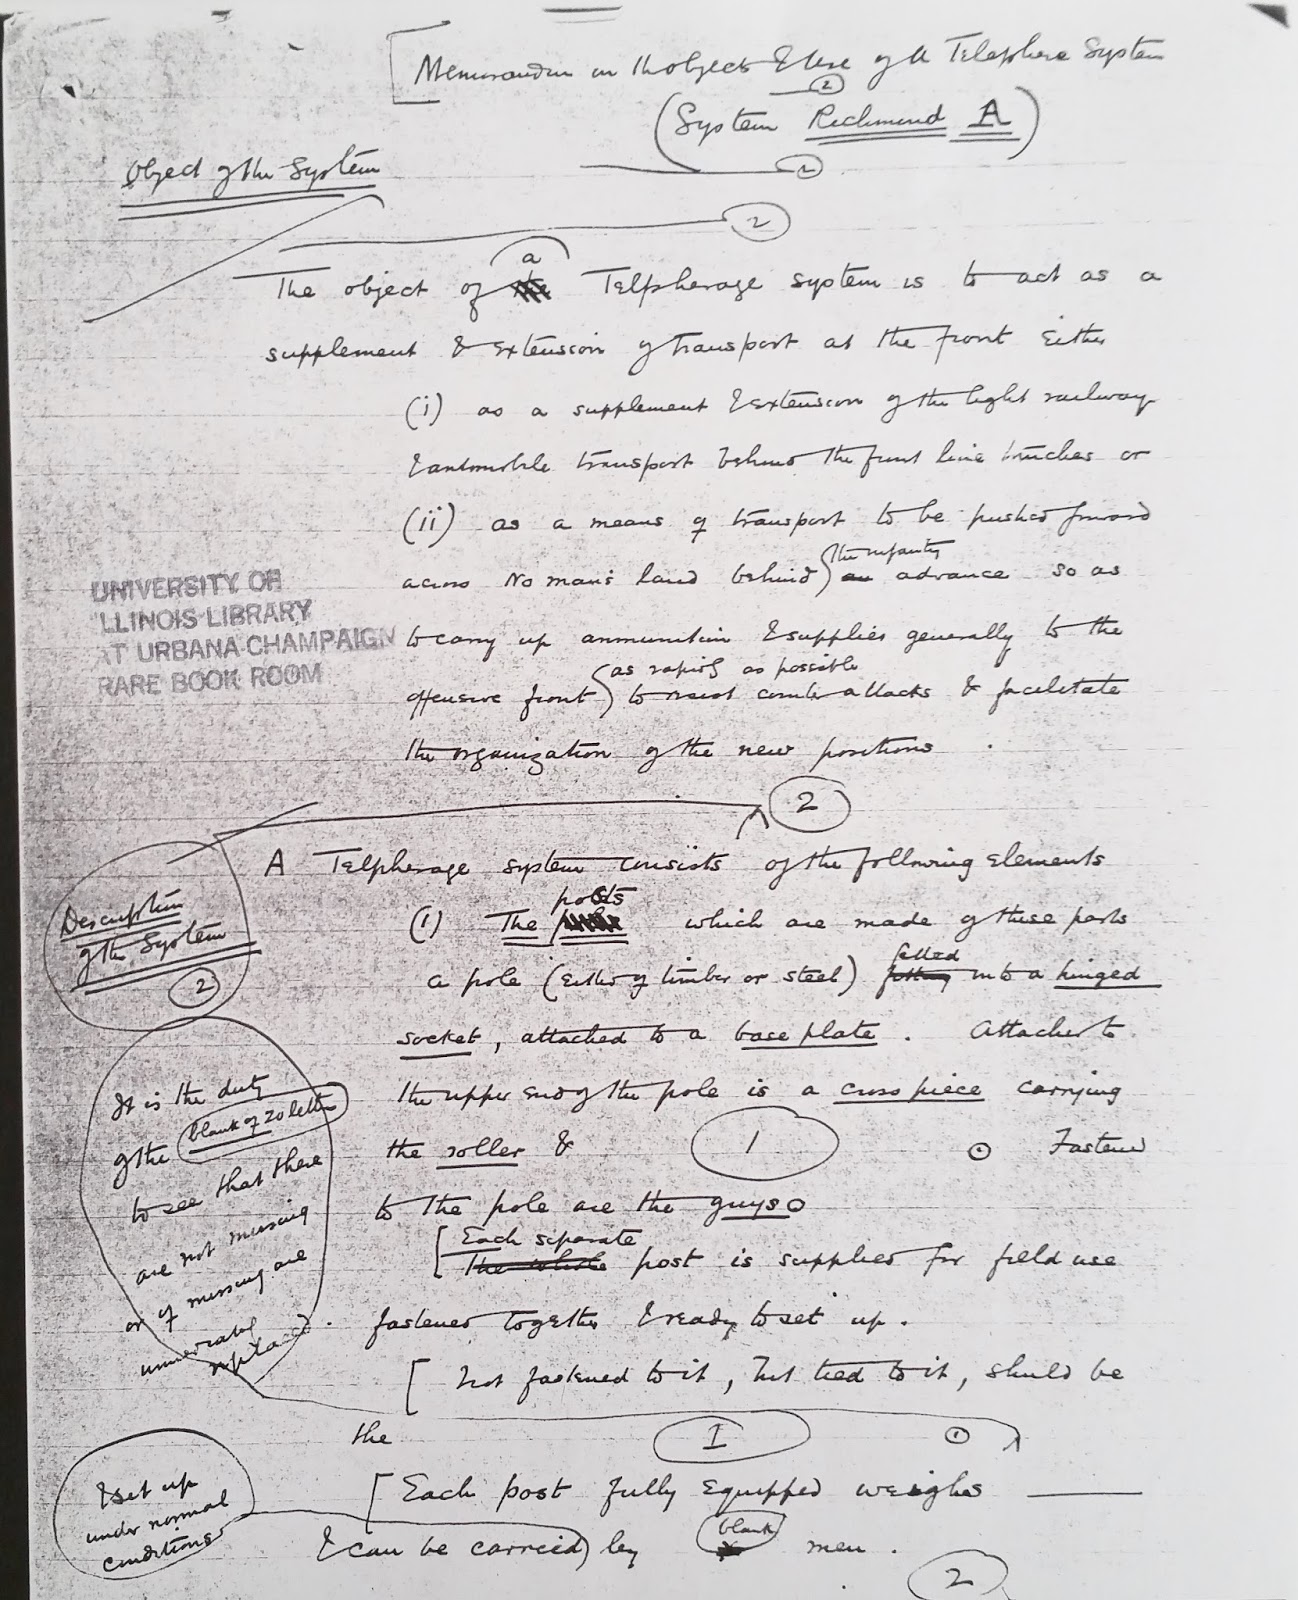 Memorandum on the objects & Use of a Telephere System
2
(System Richmond A)
2
Object of the System
2
a
The object of Telpherage system is to act as a
supplement & extension of transport at the front either
(i) as a supplement & extension of the light railway
& automobile transport behind the front line trenches or
(ii) as a means of transport to be pushed forward
the infantry
across No man's land behind advance so as
to carry up ammunition & supplies generally to the
as rapidly as possible
offensive front to resist counter attacks & facilitate
the organization of the new positions .
UNIVERSITY OF
ILLINOIS LIBRARY
AT URBANA-CHAMPAIGN
RARE BOOK ROOM
2
A Telpherage system consists of the following elements
posts
(1) The which are made of these parts
Description
of the System
2
fitted
a pole (either of timber or steel) into a hinged
socket, attached to a base plate. Attached to
the upper end of the pole is a cross piece carrying
the roller & 1 Fastened
to the pole are the guys
Each separate
The whole post is supplied for field use
fastened together & ready to set up.
It is the duty
of the blank of 20 letters
to see that there
are not missing
or if missing are
immediately
replaced.
not fastened to it, but tied to it, should be
the I
Each post fully equipped weighs
& set up
under normal
conditions
blank
& can be carried by men.
2